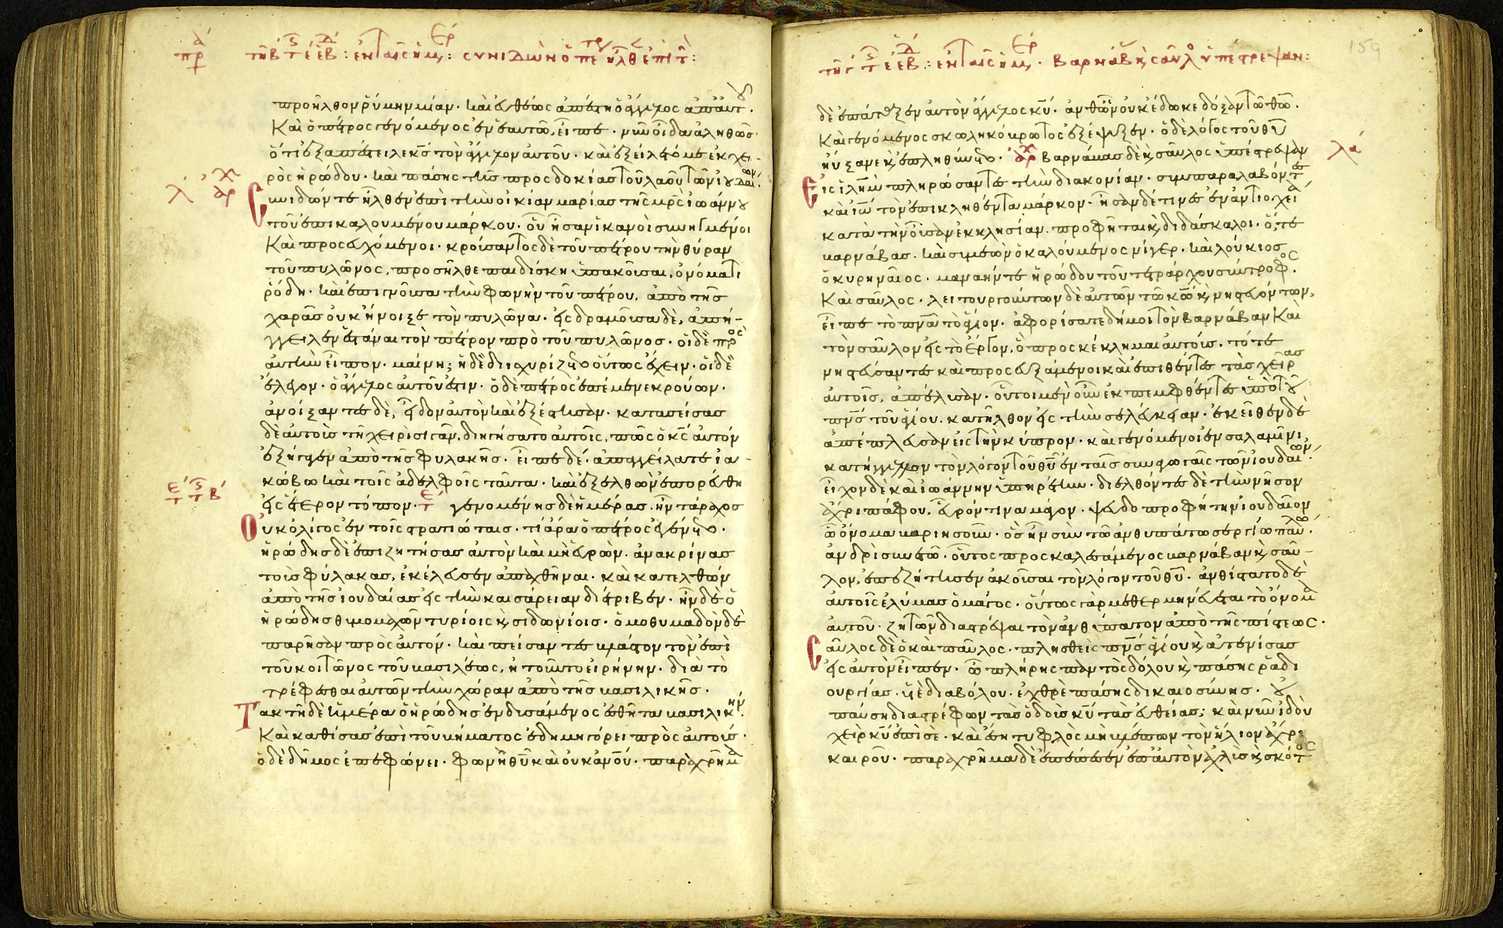 τῆ β΄ τ ϛ ε ἑβ: ἐν ταῖς ἡμ: συνιδὼν ὁ πε ἦλθ ἐπὶ τ:
προῆλθον ῥύμην μίαν· καὶ εὐθέως ἀπέστη ὁ ἄγγελος ἀπ' αὐτοῦ·
Καὶ ὁ πέτρος γενόμενος ἐν ἑαυτῶ, εἶπε· νῦν οἶδα ἀληθῶς
ὅτι ἐξαπέστειλε κς τὸν ἄγγελον αὐτοῦ· καὶ ἐξείλετό με ἐκ χει-
ρὸς ἡρώδου· καὶ πάσης τῆς προσδοκίας τοῦ λαοῦ τῶν ἰουδαίων·
Συνιδών τε ἦλθεν ἐπὶ τὴν οἰκίαν μαρίας τῆς μρς ἰωάννου
τοῦ ἐπικαλουμένου μάρκου· οὗ ἦσαν ἱκανοὶ συνηγμένοι
Καὶ προσευχόμενοι· κρούσαντος δὲ τοῦ πέτρου τὴν θύραν
τοῦ πυλῶνος, προσῆλθε παιδίσκη ὑπακοῦσαι, ὀνόματι
ῥόδη· καὶ ἐπιγνοῦσα τὴν φωνὴν τοῦ πέτρου, ἀπὸ τῆς
χαρᾶς οὐκ ἤνοιξε τὸν πυλῶνα· εἰσδραμοῦσα δὲ, ἀπή-
γγειλεν ἑστάναι τὸν πέτρον πρὸ τοῦ πυλῶνος· οἱ δὲ πρὸς
αὐτὴν εἶπον· μαίνη; ἡ δὲ διϊσχυρίζετο οὕτως ἔχειν· οἱ δὲ
ἔλεγον· ὁ ἄγγελος αὐτοῦ ἐστιν· ὁ δὲ πέτρος ἐπέμενε κρούων·
ἀνοίξαντες δὲ, εἶδον αὐτὸν καὶ ἐξέστησαν· κατασείσας
δὲ αὐτοῖς τῆ χειρὶ σιγᾶν, διηγήσατο αὐτοῖς, πῶς ὁ κς αὐτὸν
ἐξήγαγεν ἀπὸ τῆς φυλακῆς· εἶπε δέ· ἀπαγγείλατε ἰα-
κώβω καὶ τοῖς ἀδελφοῖς ταῦτα· καὶ ἐξελθὼν ἐπορεύθη
εἰς ἕτερον τόπον· γενομένης δὲ ἡμέρας· ἦν τάραχος
Οὐκ ὀλίγος ἐν τοῖς στρατιώταις· τί ἄρα ὁ πέτρος ἐγένετο·
ἡρώδης δὲ ἐπιζητήσας αὐτὸν καὶ μὴ εὑρὼν· ἀνακρίνας
τοὺς φύλακας, ἐκέλευσεν ἀπαχθῆναι· καὶ κατελθὼν
ἀπὸ τῆς ἰουδαίας εἰς τὴν καισάρειαν διέτριβεν· ἦν δὲ ὁ
ἡρώδης θυμομαχῶν τυρίοις κ, σιδωνίοις· ὁμοθυμαδὸν δὲ
παρῆσαν πρὸς αὐτόν· καὶ πείσαντες βλάστον τὸν ἐπὶ
τοῦ κοιτῶνος τοῦ βασιλέως, ἠτοῦντο εἰρήνην· διὰ τὸ
τρέφεσθαι αὐτῶν τὴν χώραν ἀπὸ τῆς βασιλικῆς·
Τακτῆ δὲ ἡμέρα ὁ ἡρώδης ἐνδυσάμενος ἐσθῆτα βασιλικήν·
Καὶ καθίσας ἐπὶ τοῦ βήματος ἐδημηγόρει πρὸς αὐτούς·
ὁ δὲ δῆμος ἐπεφώνει· φωνὴ θυ καὶ οὐκ ανου· παραχρῆμα
159
τῆς τ ϛ ε ἑβ: ἐν ταῖς ἡμ· βαρνάβ κ, σαῦλο ὑπέστρεψαν:
δὲ ἐπάταξεν αὐτὸν ἄγγελος κυ· ἀνθ' ὧν οὐκ ἔδωκε δόξαν τῶ θω·
Καὶ γενόμενος σκωληκόβρωτος ἐξέψυξεν· ὁ δὲ λόγος τοῦ θυ
ηὔξανε κ, ἐπληθύνετο· βαρνάβας δὲ κ, σαῦλος ὑπέστρεψαν
Εἰς ἱλημ πληρώσαντες τὴν διακονίαν· συμπαραλαβόντες
καὶ ἰω τὸν ἐπικληθέντα μάρκον· ἦσαν δέ τινες ἐν ἀντιοχεία
κατὰ τὴν οὖσαν ἐκκλησίαν· προφῆται κ, διδάσκαλοι· ὅ, τε
βαρνάβας· καὶ συμεὼν ὁ καλούμενος νίγερ· καὶ λούκιος
ὁ κυρηναῖος· μαναήν τε ἡρώδου τοῦ τετράρχου σύντροφος·
Καὶ σαῦλος· λειτουργούντων δὲ αὐτῶν τῶ κω κ, νηστευόντων,
εἶπε τὸ πνα τὸ ἅγιον· ἀφορίσατε δή μοι τὸν βαρνάβαν Καὶ
τὸν σαῦλον εἰς τὸ ἔργον, ὃ προσκέκλημαι αὐτούς· τότε
νηστεύσαντες καὶ προσευξάμενοι καὶ ἐπιθέντες τὰς χεῖρας
αὐτοῖς, ἀπέλυσαν· οὗτοι μὲν οὖν ἐκπεμφθέντες ὑπὸ τοῦ
πνς τοῦ ἁγίου· κατῆλθον εἰς τὴν σελεύκειαν· ἐκεῖθεν δὲ
ἀπέπλευσαν εἰς τὴν κύπρον· καὶ γενόμενοι ἐν σαλαμῖνι
κατήγγελλον τὸν λόγον τοῦ θυ ἐν ταῖς συναγωγαῖς τῶν ἰουδαίων·
εἶχον δὲ καὶ ἰωάννην ὑπηρέτην· διελθόντες δὲ τὴν νῆσον
ἄχρι πάφου, εὗρόν τινα μάγον· ψευδοπροφήτην ἰουδαῖον
ὧ ὄνομα βαριησοῦς· ὃς ἦν σὺν τῶ ἀνθυπάτω σεργίω παύλω·
ἀνδρὶ συνετῶ· οὗτος προσκαλεσάμενος βαρνάβαν κ, σαῦ-
λον, ἐπεζήτησεν ἀκοῦσαι τὸν λόγον τοῦ θυ· ἀνθίστατο δὲ
αὐτοῖς ἐλύμας ὁ μάγος· οὕτως γὰρ μεθερμηνεύεται τὸ ὄνομα
αὐτοῦ· ζητῶν διαστρέψαι τὸν ἀνθύπατον ἀπὸ τῆς πίστεως·
Σαῦλος δὲ ὁ καὶ παῦλος· πλησθεὶς πνς ἁγίου κ, ἀτενίσας
εἰς αὐτὸν εἶπεν· ὦ πλήρης παντὸς δόλου κ, πάσης ῥαδι
ουργίας· υἱὲ διαβόλου· ἐχθρὲ πάσης δικαιοσύνης· οὐ
παύση διαστρέφων τὰς ὁδοὺς κυ τὰς εὐθείας; καὶ νῦν ἰδοὺ
χεὶρ κυ ἐπὶ σέ· καὶ ἔση τυφλὸς μὴ βλέπων τὸν ἥλιον ἄχρι
καιροῦ· παραχρῆμα δὲ ἐπέπεσεν ἐπ' αὐτὸν ἀχλὺς κ, σκότος